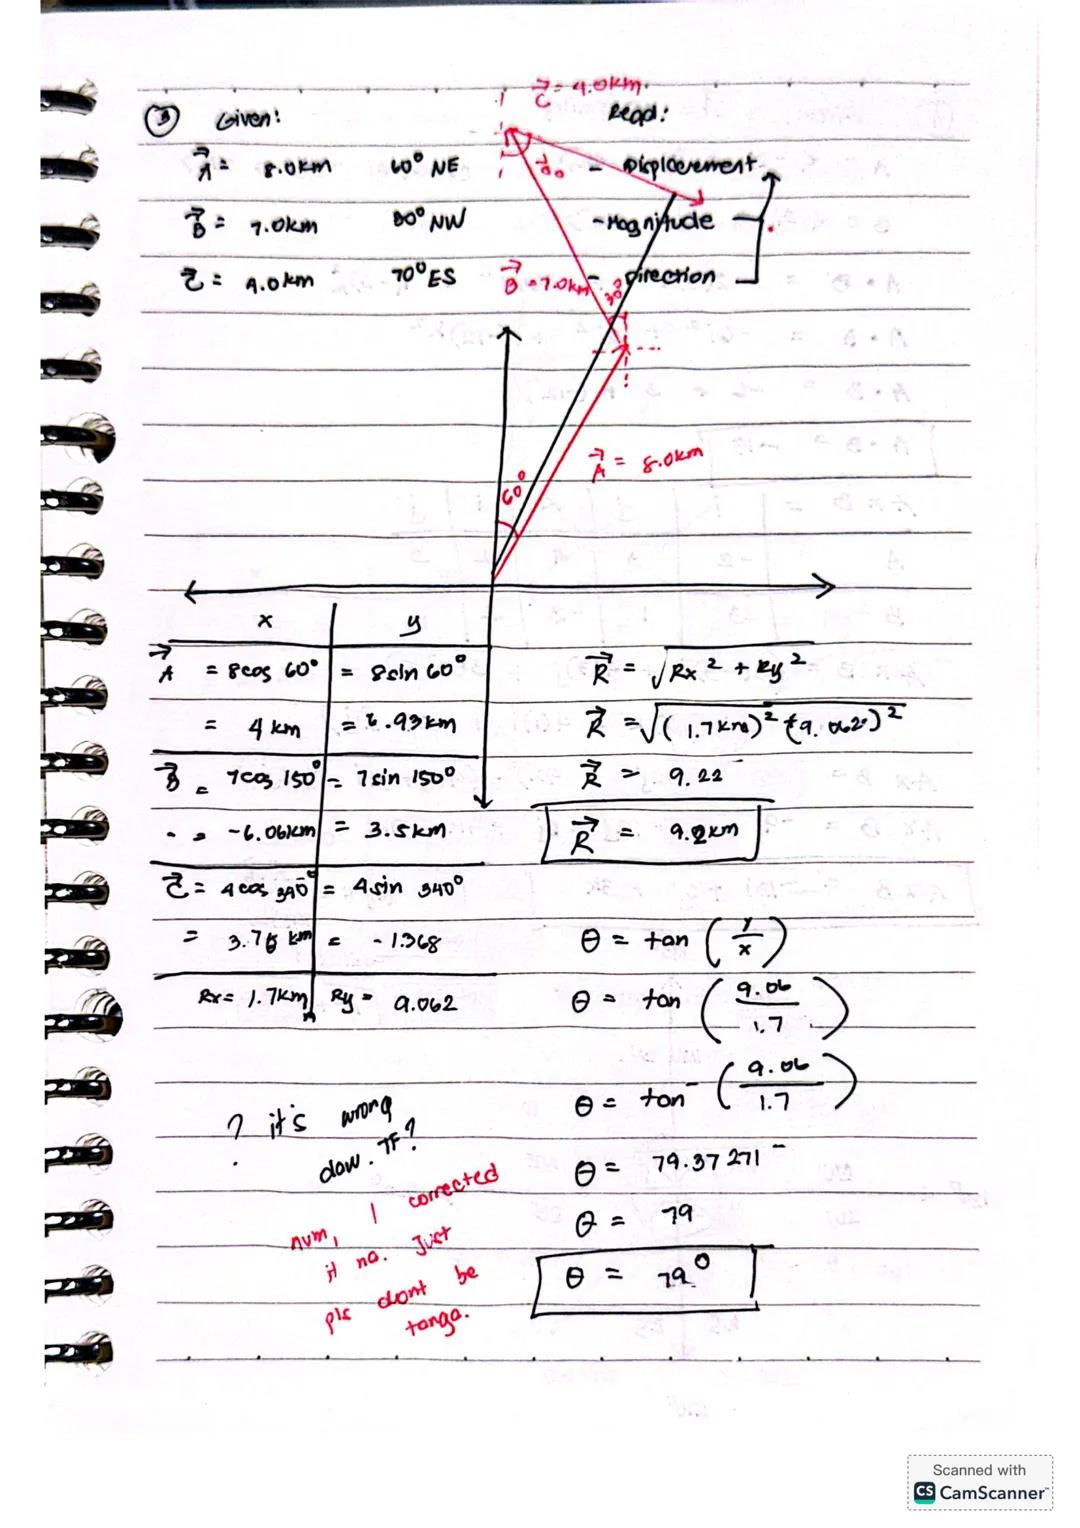 C = 4.0km.
③ Given: Reqd:
A = 8.0km 60° NE - Displacement
70°
B = 7.0km 30° NW - Magnitude
C = 4.0km 70° ES - direction
B = 7.0km
30°
A = 8.0km
60°
x y
A = 8cos 60° = 8sin 60°
= 4 km = 6.93km
B = 7cos 150° = 7sin 150°
= -6.06km = 3.5km
C = 4cos 340° = 4sin 340°
= 3.76 km = -1.368
Rx = 1.7km Ry = 9.062
R = √Rx² + Ry²
R = √(1.7km)² + (9.062)²
R = 9.22
R = 9.2km
θ = tan (y/x)
θ = tan (9.06/1.7)
θ = tan⁻ (9.06/1.7)
θ = 79.37271
θ = 79
θ = 79°
? it's wrong
daw. TF?
num, I corrected
it na. Just
pls dont be
tanga.
Scanned with
CS CamScanner